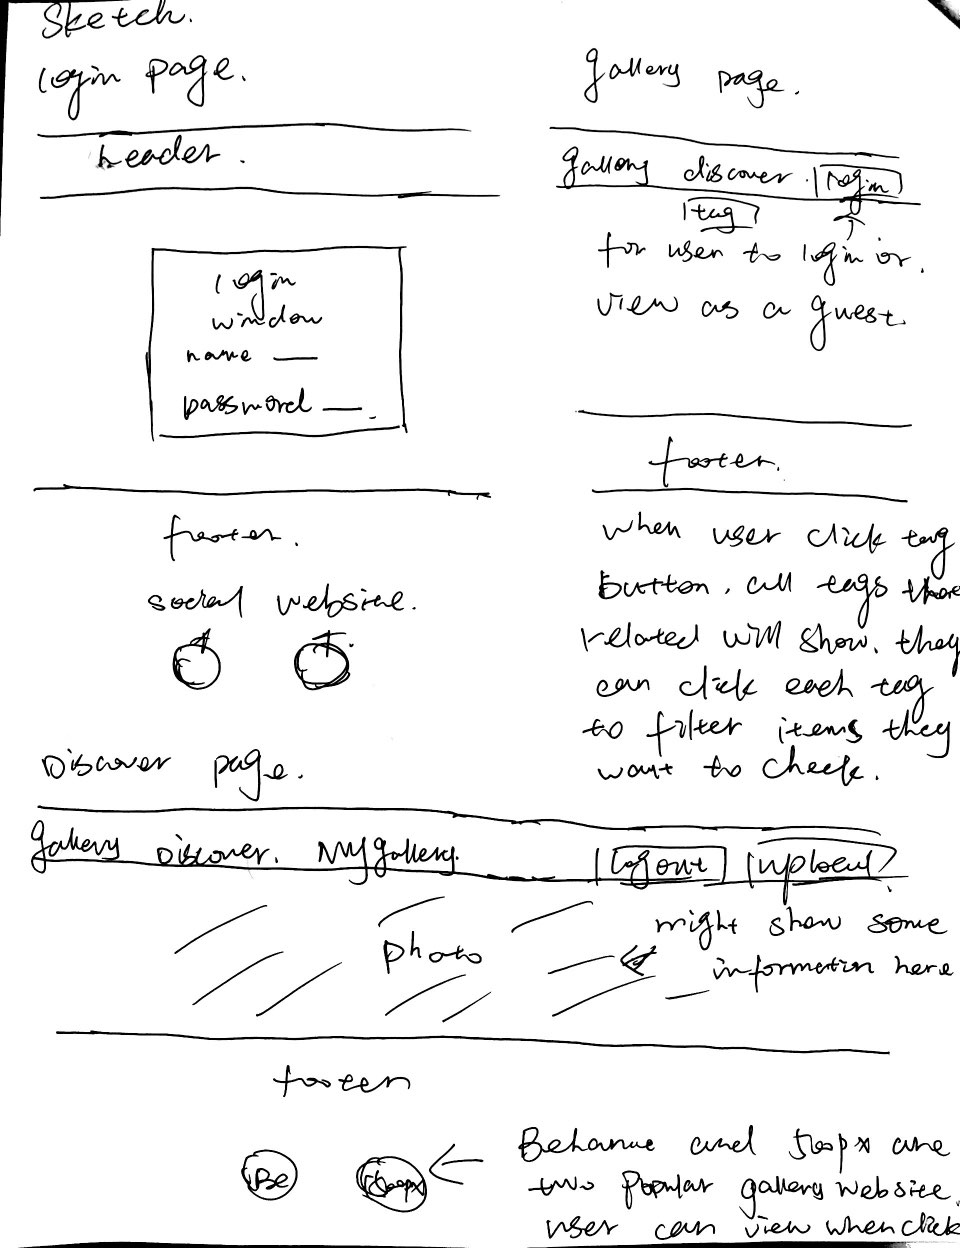 Sketch.
login page.
header.
login
window
name
password
footer.
social website.
gallery page.
gallery discover. login
tag
for user to login or.
view as a guest.
footer.
when user click tag
button. all tags there
related will show. they
can click each tag
to filter items they
want to check.
Discover page.
gallery Discover. My gallery.
logout upload
photo
might show some
information here
footer
Be 500px
Behance and 500px are
two popular gallery website.
user can view when click